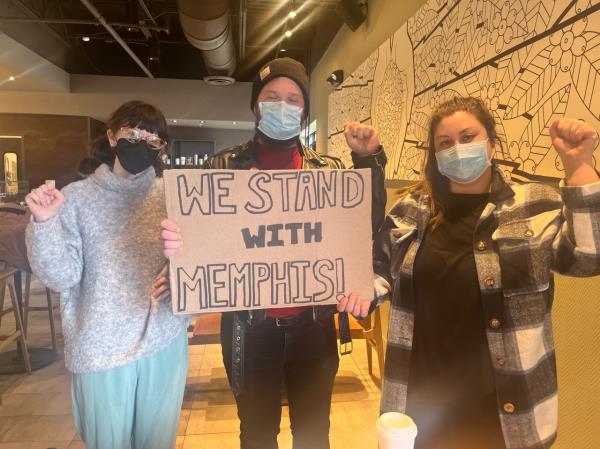 WE STAND
WITH
MEMPHIS!